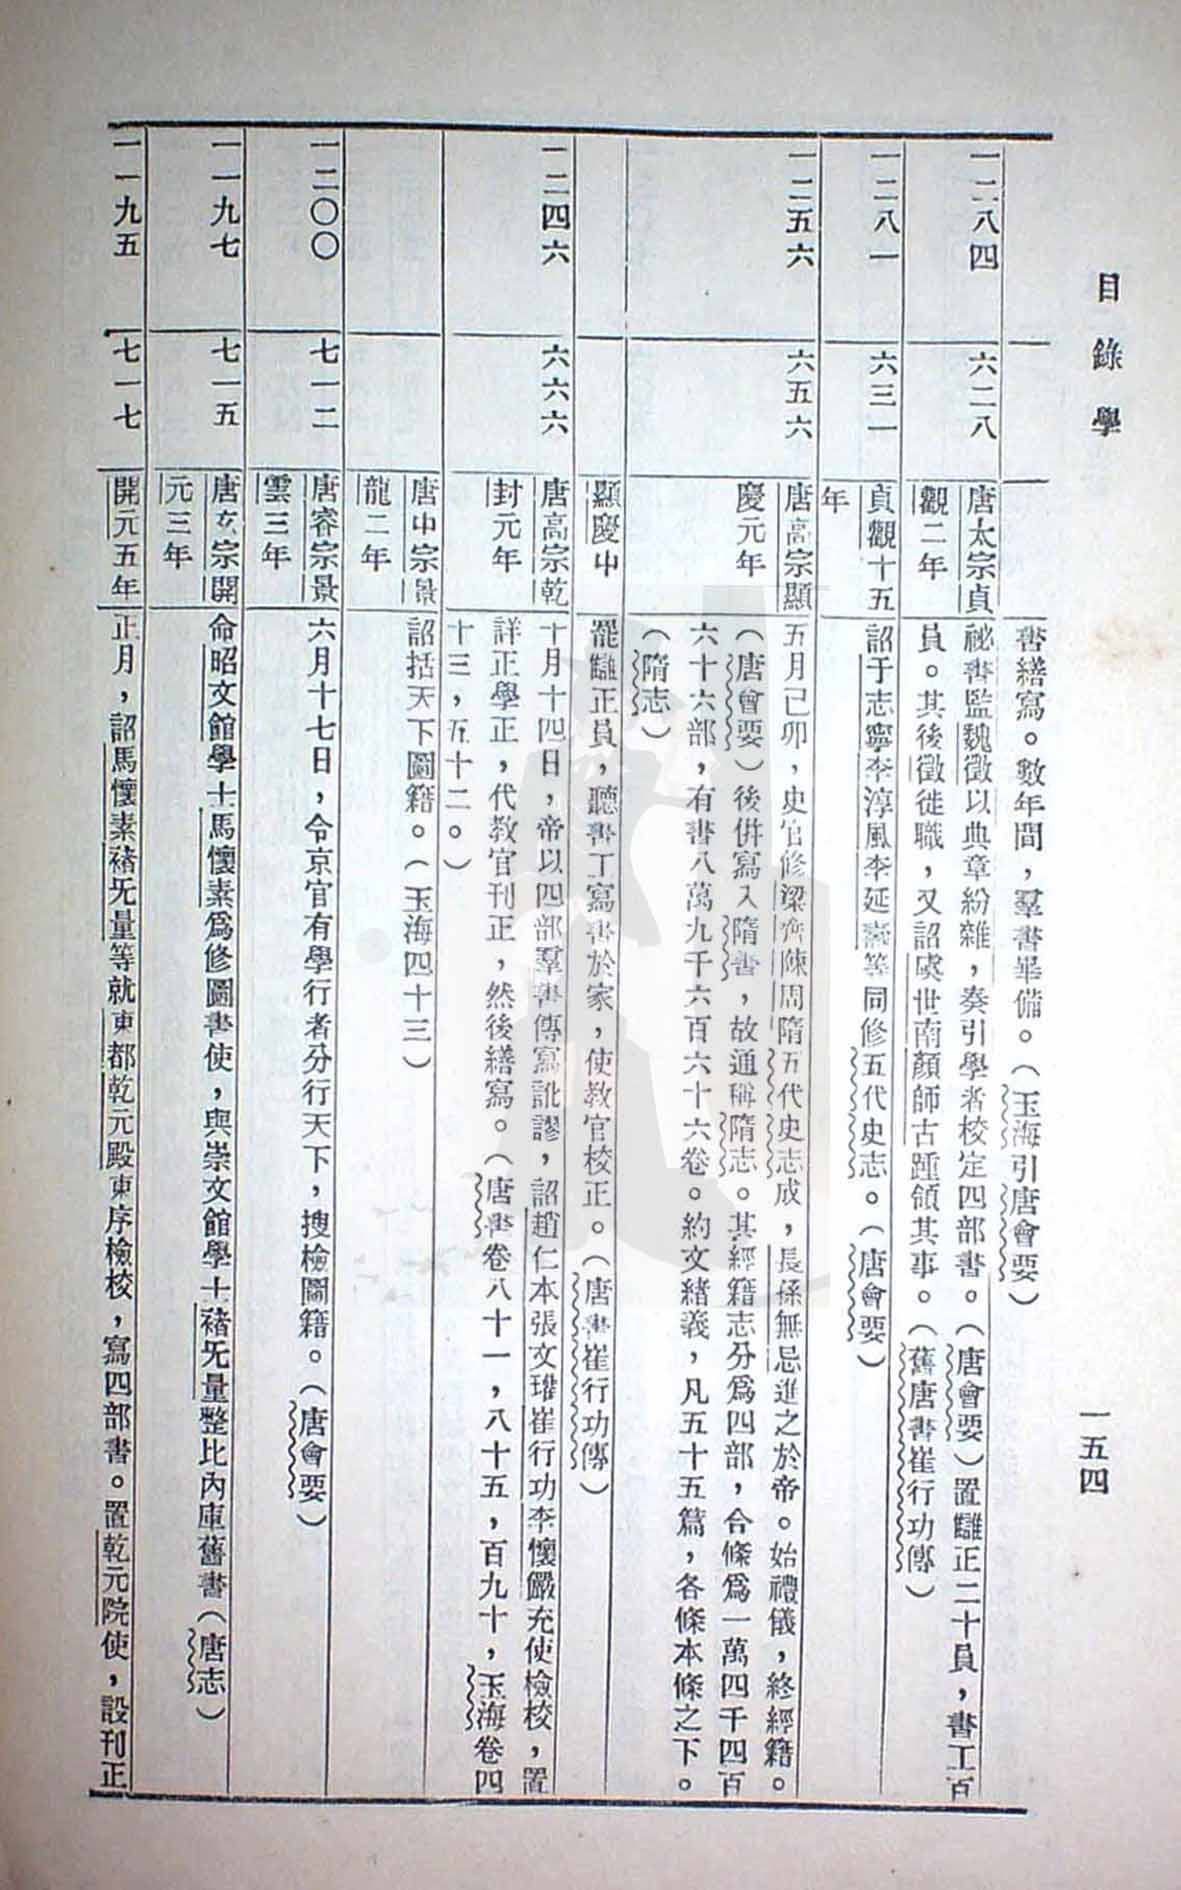 目錄學
一五四
書繕寫。數年間，羣書畢備。（玉海引唐會要）
一二八四
六二八
唐太宗貞
觀二年
祕書監魏徵以典章紛雜，奏引學者校定四部書。（唐會要）置讎正二十員，書工百
員。其後徵徙職，又詔虞世南顏師古踵領其事。（舊唐書崔行功傳）
一二八一
六三一
貞觀十五
年
詔于志寧李淳風李延壽等同修五代史志。（唐會要）
一二五六
六五六
唐高宗顯
慶元年
五月己卯，史官修梁齊陳周隋五代史志成，長孫無忌進之於帝。始禮儀，終經籍。
（唐會要）後併寫入隋書，故通稱隋志。其經籍志分爲四部，合條爲一萬四千四百
六十六部，有書八萬九千六百六十六卷。約文緒義，凡五十五篇，各條本條之下。
（隋志）
顯慶中
罷讎正員，聽書工寫書於家，使教官校正。（唐書崔行功傳）
一二四六
六六六
唐高宗乾
封元年
十月十四日，帝以四部羣書傳寫訛謬，詔趙仁本張文瓘崔行功李懷儼充使檢校，置
詳正學正，代教官刊正，然後繕寫。（唐書卷八十一，八十五，百九十，玉海卷四
十三，五十二。）
唐中宗景
龍二年
詔括天下圖籍。（玉海四十三）
一二〇〇
七一二
唐睿宗景
雲三年
六月十七日，令京官有學行者分行天下，搜檢圖籍。（唐會要）
一一九七
七一五
唐玄宗開
元三年
命昭文館學士馬懷素爲修圖書使，與崇文館學士褚旡量整比內庫舊書（唐志）
一一九五
七一七
開元五年
正月，詔馬懷素褚旡量等就東都乾元殿東序檢校，寫四部書。置乾元院使，設刊正